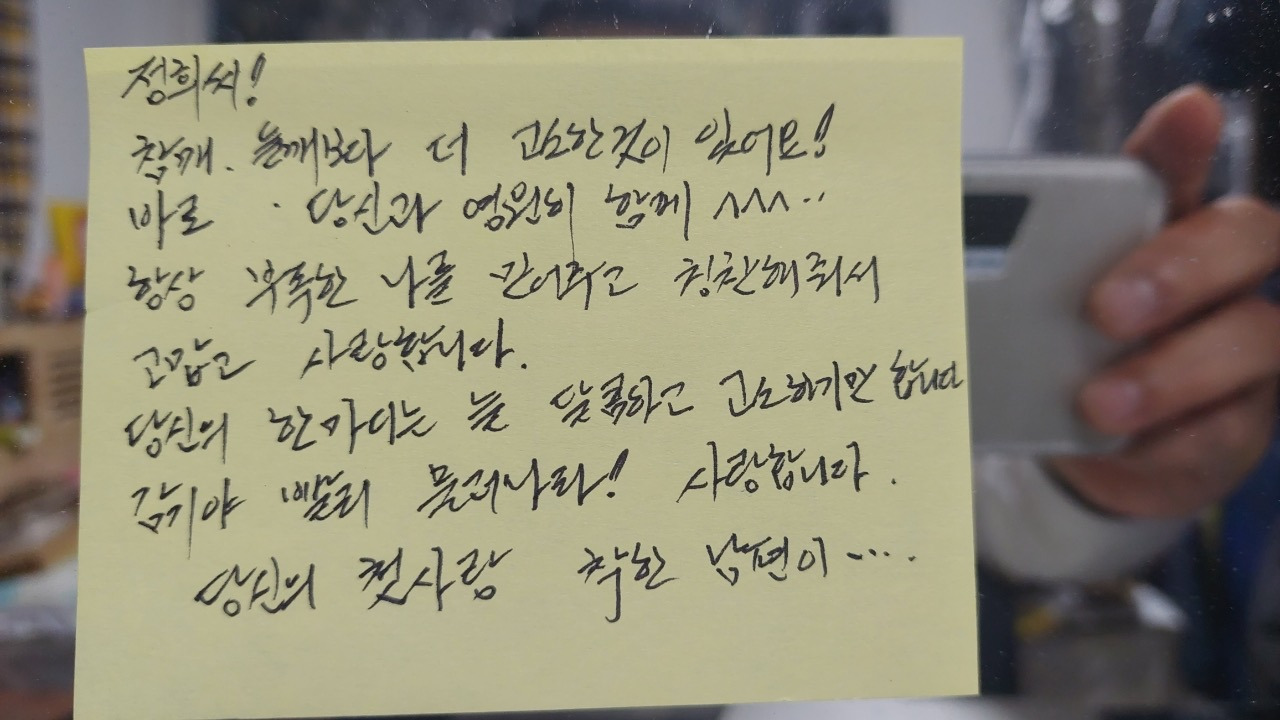 정희씨!
참깨. 들깨보다 더 고소한것이 있어요!
바로 · 당신과 영원히 함께 ^^^..
항상 부족한 나를 믿어주고 칭찬해줘서
고맙고 사랑합니다.
당신의 한마디는 늘 달콤하고 고소하기만 합니다
감기야 빨리 물러나라! 사랑합니다.
당신의 첫사랑 착한 남편이 ....